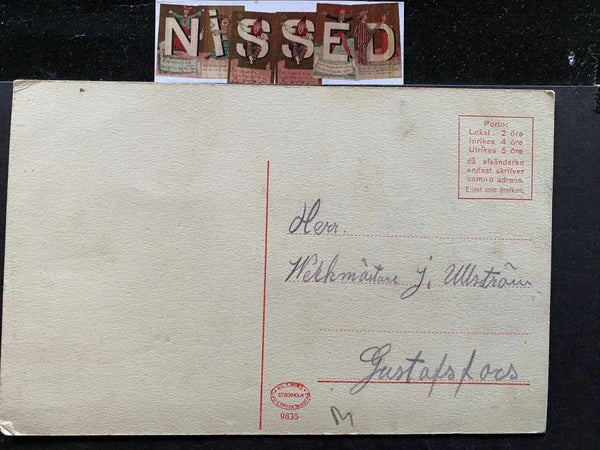 NiSSED
Porto:
Lokal. 2 öre
Inrikes 4 öre
Utrikes 5 öre
då afsändaren
endast skrifver
namn o adress.
Eljest som brefkort.
Herr.
Werkmästare J. Ullström
Gustafsfors
STOCKHOLM
9835
M